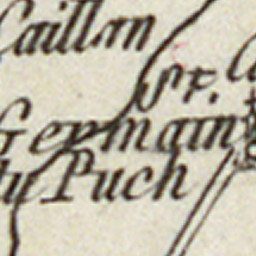 Caillan
St.
Germain
du Puch